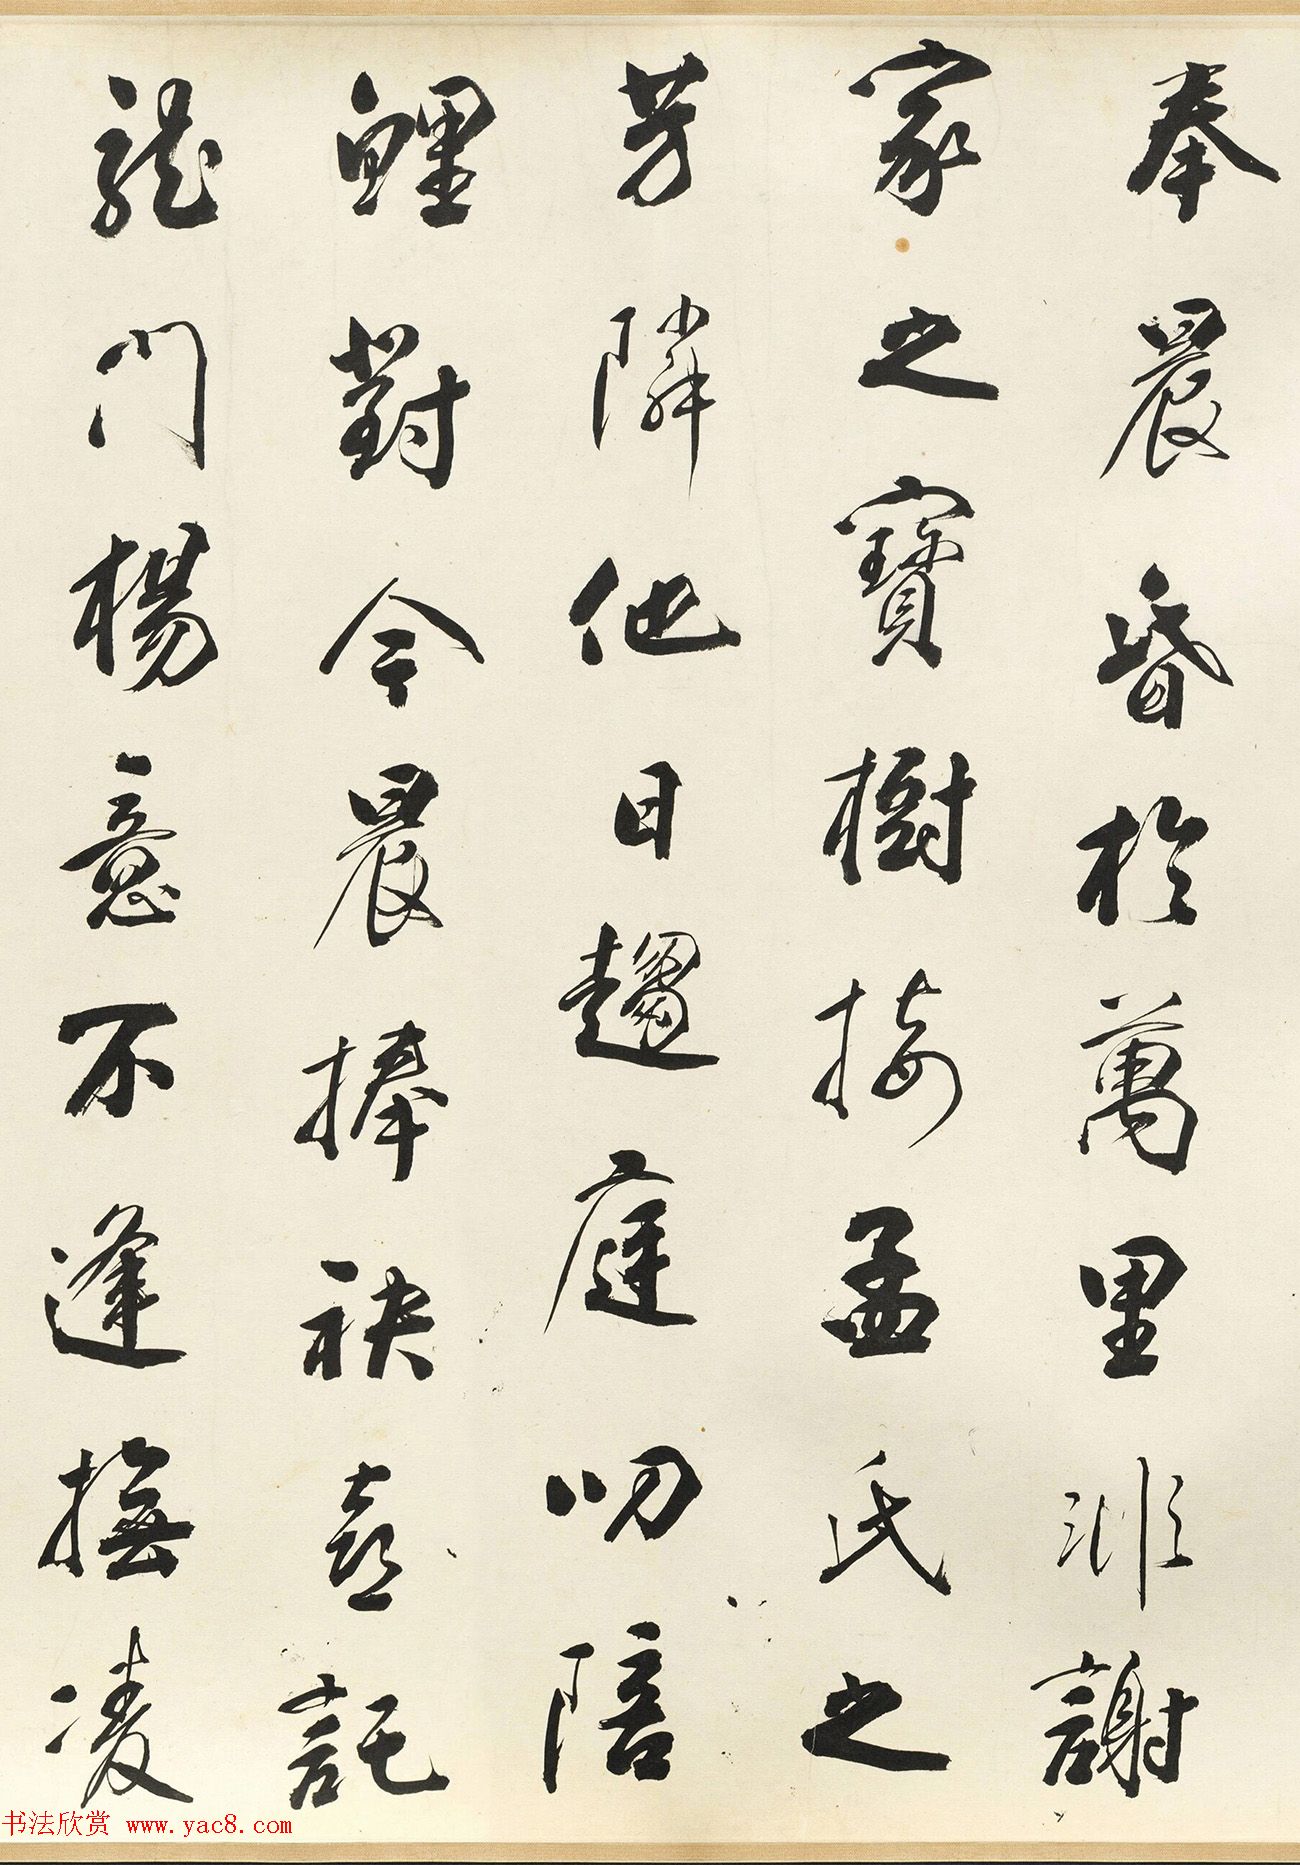 奉晨昏於萬里非謝
家之寶樹接孟氏之
芳隣他日趨庭叨陪
鯉對今晨捧袂喜託
龍門楊意不逢撫凌
书法欣赏 www.yac8.com